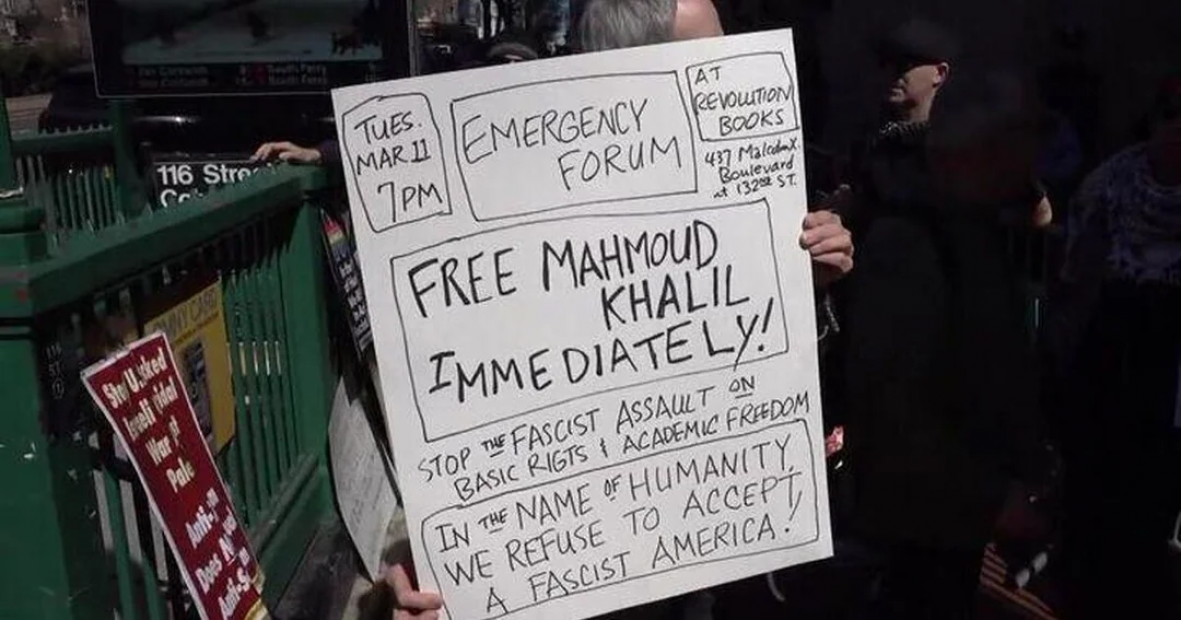 TUES.
MAR 11
7PM
EMERGENCY
FORUM
AT
REVOLUTION
BOOKS
437 Malcolm X
Boulevard
at 132nd ST.
FREE MAHMOUD
KHALIL
IMMEDIATELY!
STOP THE FASCIST ASSAULT ON
BASIC RIGTS & ACADEMIC FREEDOM
IN THE NAME OF HUMANITY,
WE REFUSE TO ACCEPT
A FASCIST AMERICA!
116 Stre
South Ferry
South Ferry
War
Does